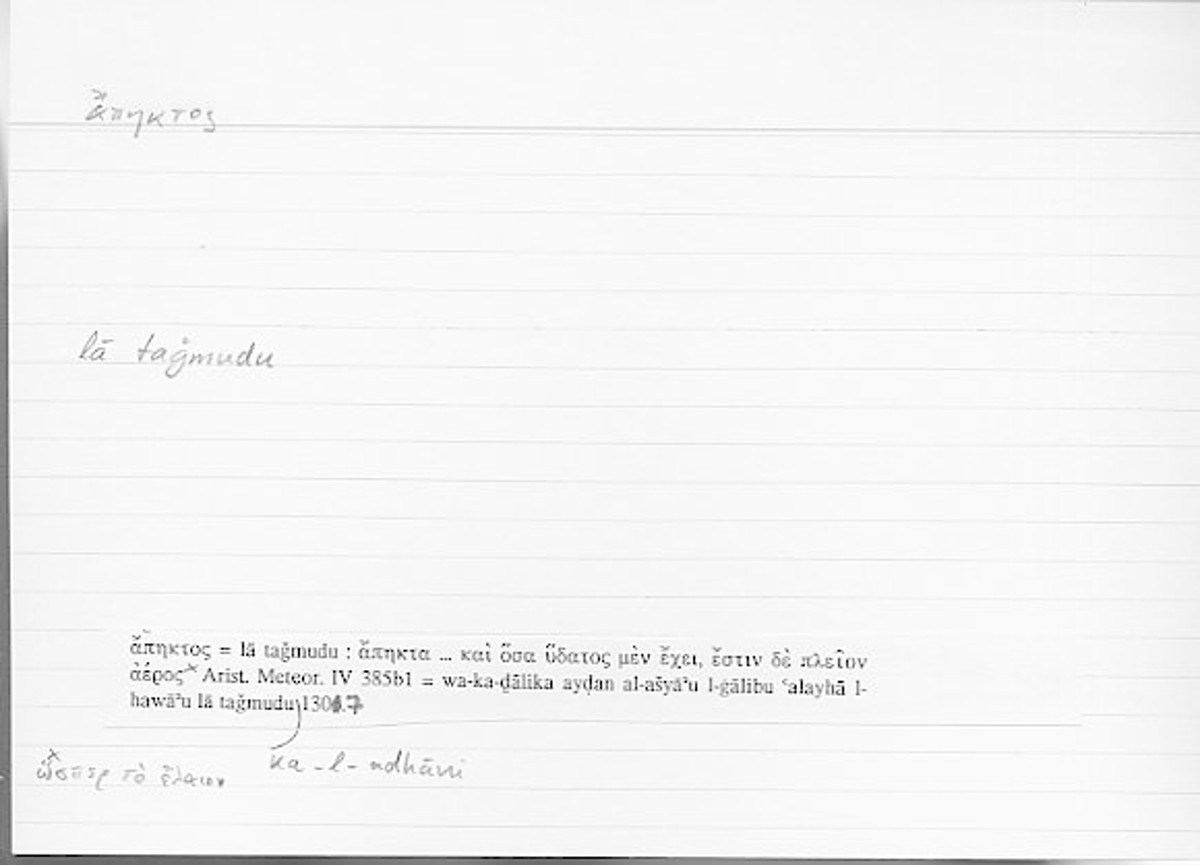 ἄπηκτος
lā taǧmudu
ἄπηκτος = lā taǧmudu : ἄπηκτα ... καὶ ὅσα ὕδατος μὲν ἔχει, ἔστιν δὲ πλεῖον
ἀέρος Arist. Meteor. IV 385b1 = wa-ka-ḏālika ayḍan al-ašyāʾu l-ġālibu ʿalayhā l-
hawāʾu lā taǧmudu
ka-l-adhāni
ὥσπερ τὸ ἔλαιον